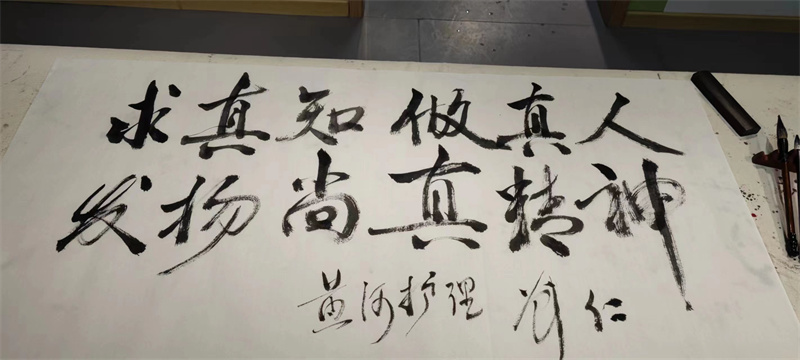 求真知做真人
发扬尚真精神
黄河护理 仁